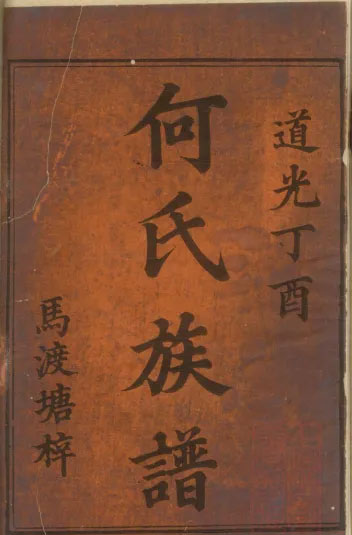 道光丁酉
何氏族譜
馬渡塘梓